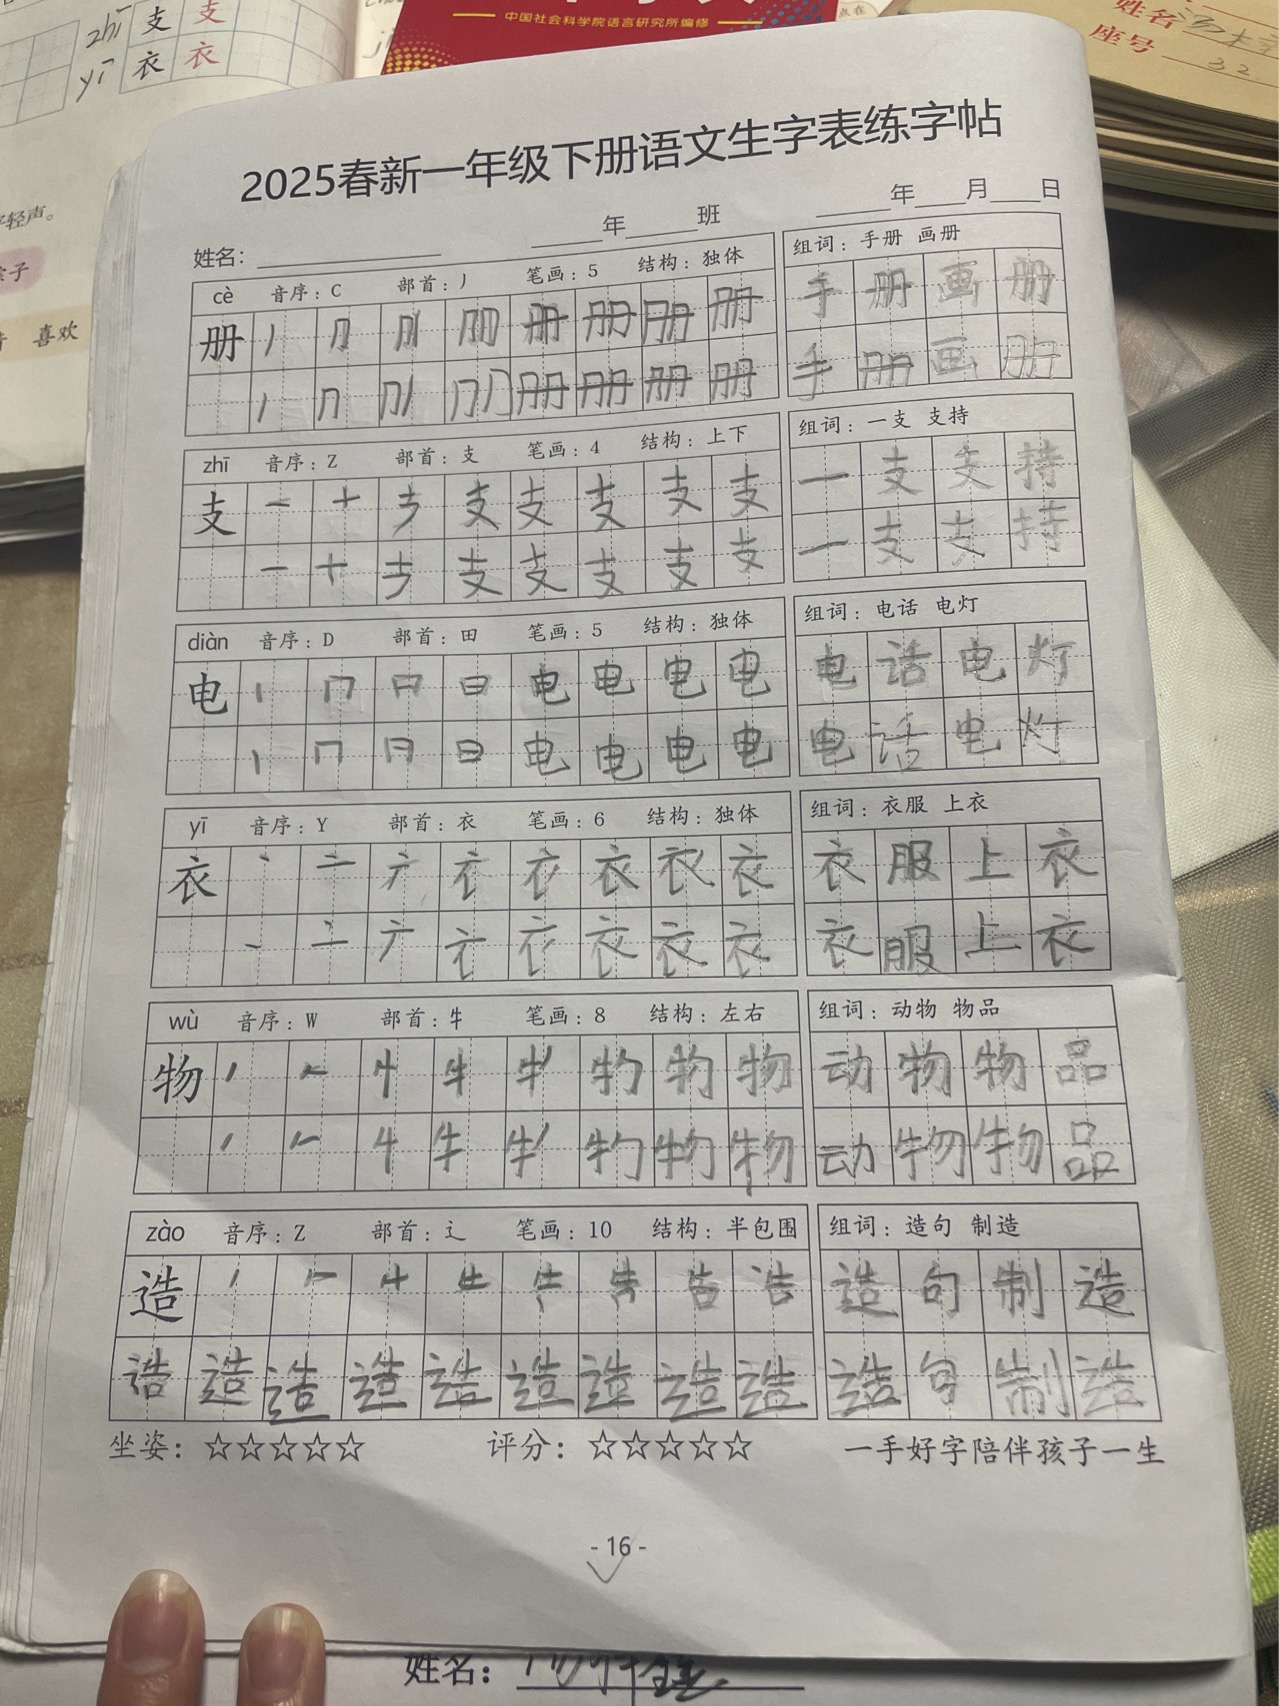 zhī 支 支
yī 衣 衣
中国社会科学院语言研究所编修
姓名
座号 32
轻声。
喜欢
2025春新一年级下册语文生字表练字帖
姓名: ____年____班 ____年___月___日
cè 音序: C 部首: 丿 笔画: 5 结构: 独体 组词: 手册 画册
册 册 册 册 册 手 册 画 册
册 册 册 册 手 册 画 册
zhī 音序: Z 部首: 支 笔画: 4 结构: 上下 组词: 一支 支持
支 一 十 支 支 支 支 支 一 支 支 持
一 十 支 支 支 支 支 一 支 支 持
diàn 音序: D 部首: 田 笔画: 5 结构: 独体 组词: 电话 电灯
电 丨 冂 日 日 电 电 电 电 电 话 电 灯
丨 冂 日 日 电 电 电 电 电 话 电 灯
yī 音序: Y 部首: 衣 笔画: 6 结构: 独体 组词: 衣服 上衣
衣 丶 亠 衣 衣 衣 衣 服 上 衣
丶 亠 衣 衣 衣 衣 服 上 衣
wù 音序: W 部首: 牜 笔画: 8 结构: 左右 组词: 动物 物品
物 丿 𠂉 牛 牜 物 物 动 物 物 品
丿 𠂉 牛 牜 物 物 动 物 物 品
zào 音序: Z 部首: 辶 笔画: 10 结构: 半包围 组词: 造句 制造
造 丿 𠂉 告 告 造 句 制 造
造 造 造 造 造 造 造 造 造 句 制 造
坐姿: ☆☆☆☆☆ 评分: ☆☆☆☆☆ 一手好字陪伴孩子一生
- 16 -
姓名: